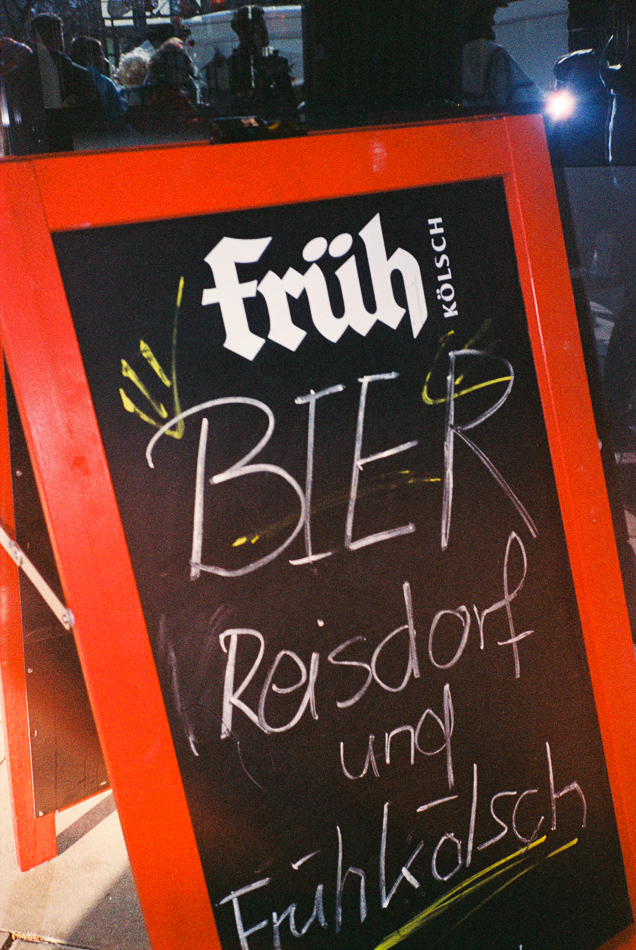 früh
KÖLSCH
BIER
Reisdorf
und
Frühkölsch